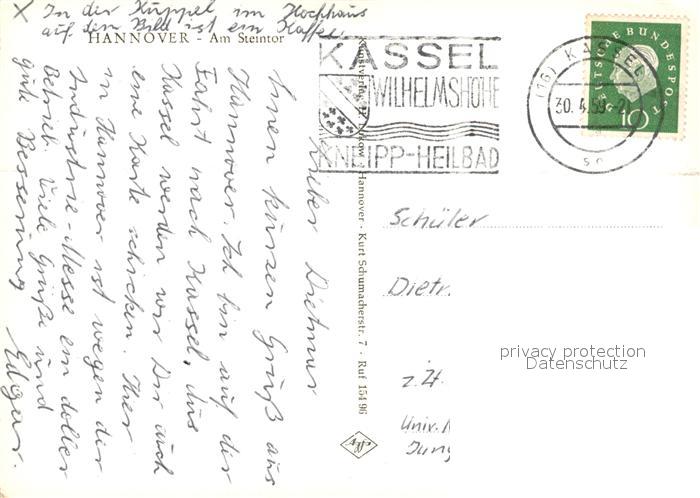 X In der Kuppel im Hochhaus
auf dem Bild ist ein Kaffee
HANNOVER - Am Steintor
Lieber Dietmar
Einen kurzen Gruß aus
Hannover. Ich bin auf der
Fahrt nach Kassel. Aus
Kassel werden wir Dir auch
eine Karte schicken. Hier
in Hannover ist wegen der
Industrie-Messe ein doller
Betrieb. Viele Grüße und
gute Besserung
Edgar.
Hannover · Kurt Schumacherstr. 7 · Ruf 154 96
KASSEL
WILHELMSHÖHE
KNEIPP-HEILBAD
(16) KASSEL
30.4.59
DEUTSCHE BUNDESPOST
10
Schüler
Dietr
z. Zt.
Univ.
Jung
privacy protection
Datenschutz